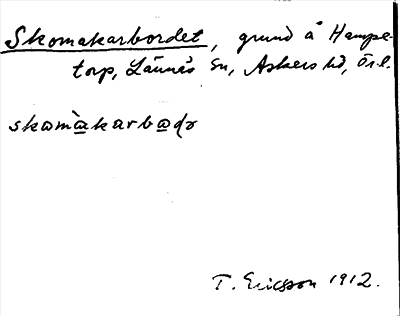 Skomakarbordet, grund å Hampe-
torp, Lännäs sn, Askers hd, Ör.l.
skɷmɷ̀kɑrbɷdə
T. Ericsson 1912.